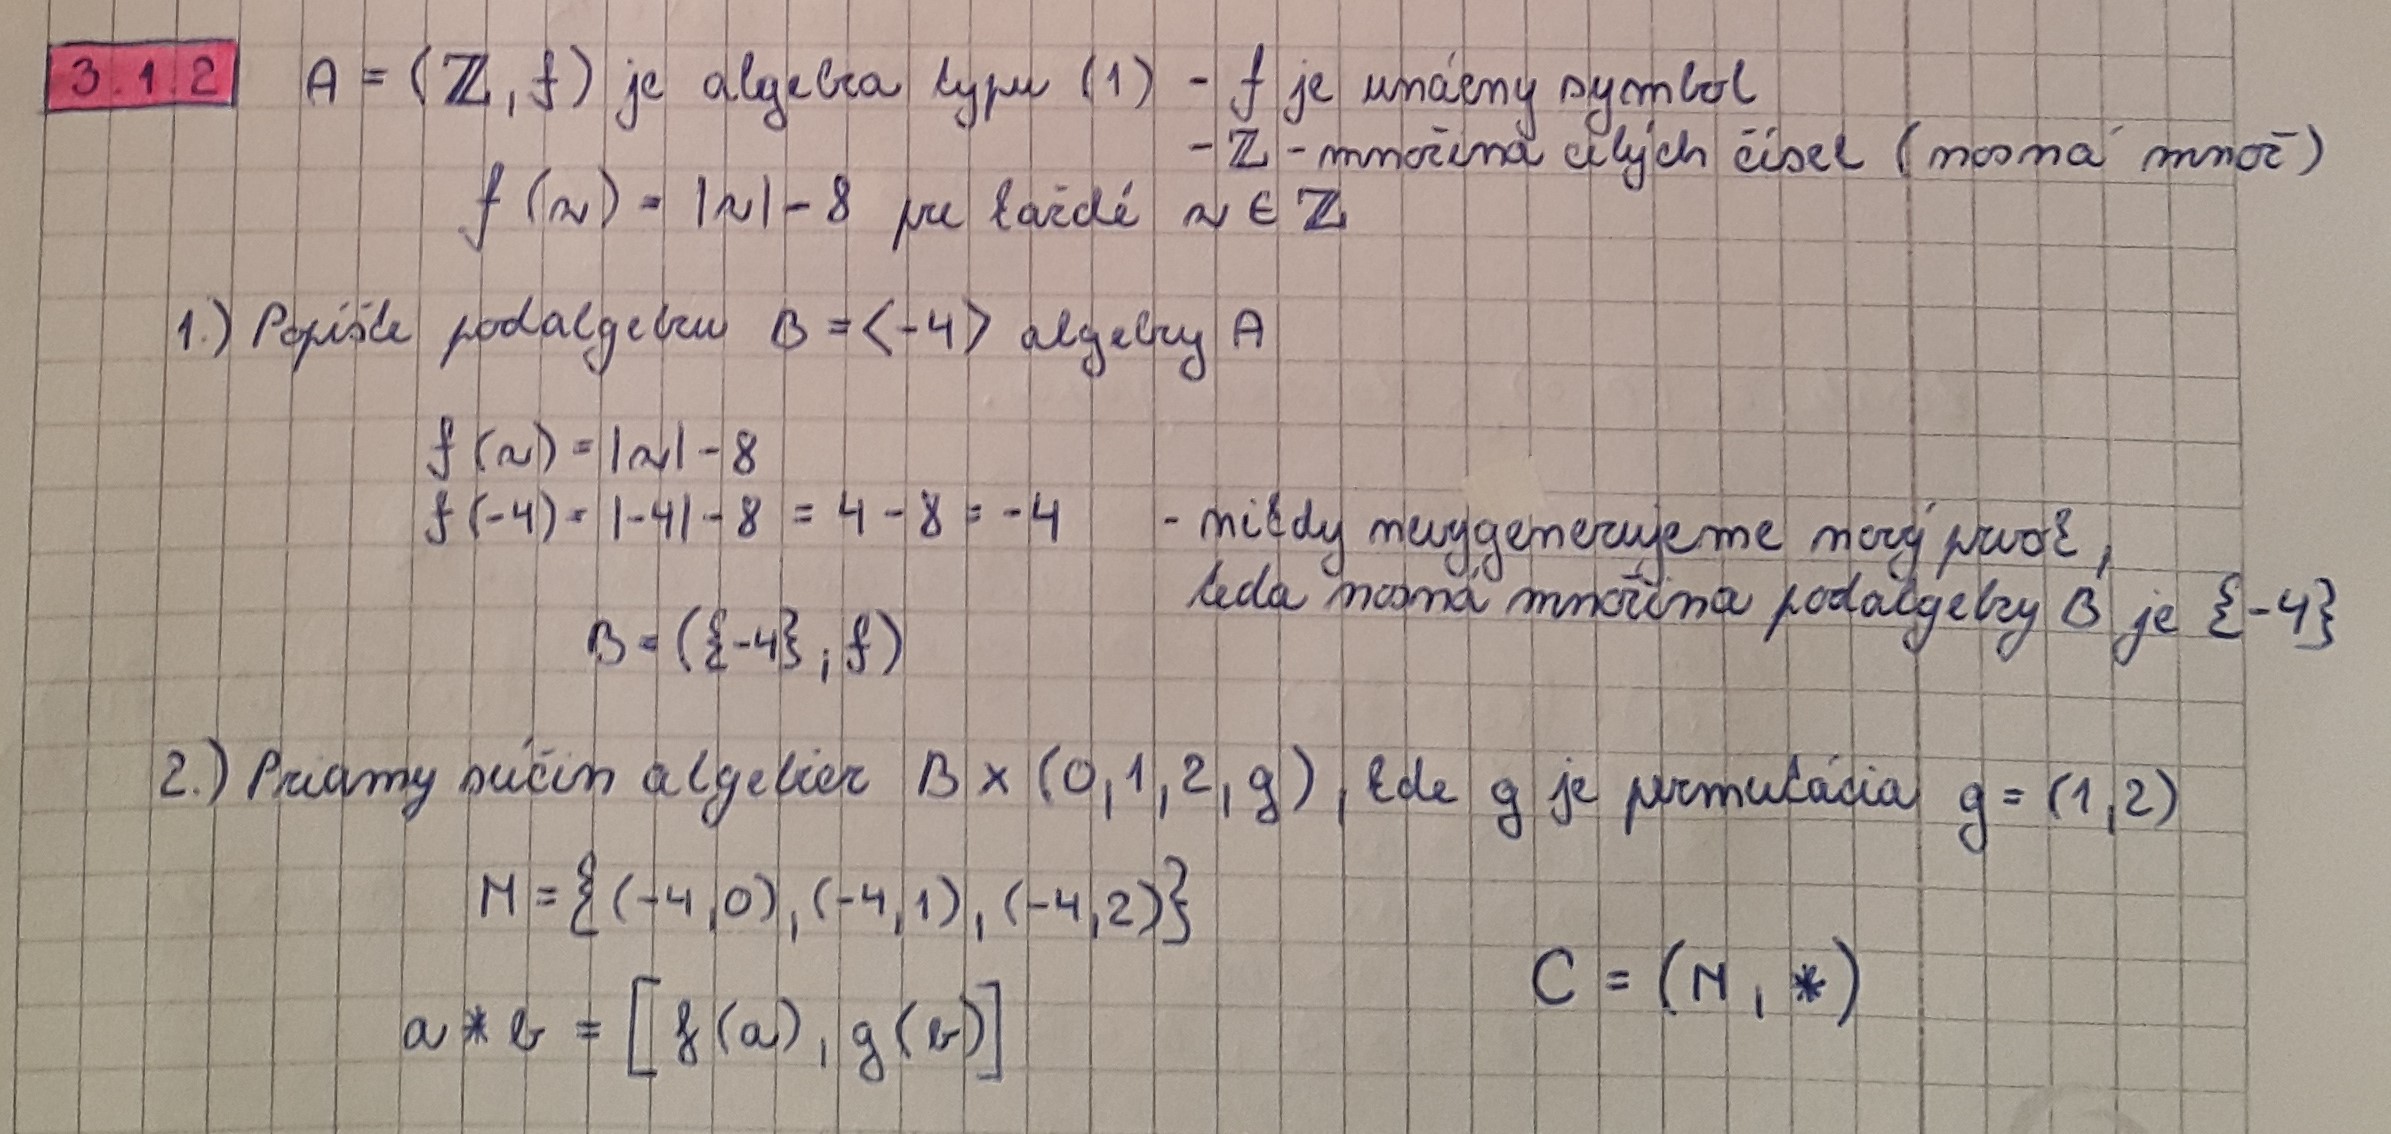 3.1.2 A = (ℤ, f) je algebra typu (1) - f je unárny symbol
- ℤ - množina celých čísel (nosná množ)
f(n) = |n| - 8 pre každé n ∈ ℤ
1.) Popíšte podalgebru B = <-4> algebry A
f(n) = |n| - 8
f(-4) = |-4| - 8 = 4 - 8 = -4 - nikdy nevygenerujeme nový prvok,
teda nosná množina podalgebry B je {-4}
B = ({-4}, f)
2.) Priamy súčin algebier B × (0,1,2,g), kde g je permutácia g = (1,2)
M = {(-4,0), (-4,1), (-4,2)}
C = (M, *)
a * b = [f(a), g(b)]